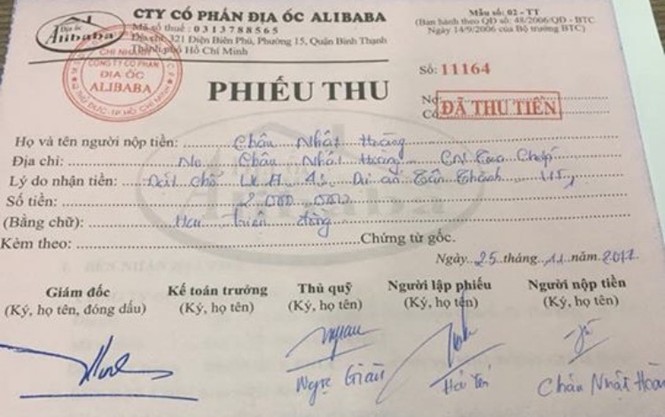 CTY CỔ PHẦN ĐỊA ỐC ALIBABA
Mã số thuế: 0313788565
Địa chỉ: 321 Điện Biên Phủ, Phường 15, Quận Bình Thạnh
Thành phố Hồ Chí Minh
Địa ốc
Alibaba
Mẫu số: 02 - TT
(Ban hành theo QĐ số: 48/2006/QĐ - BTC
Ngày 14/9/2006 của Bộ trưởng BTC)
CHI NHÁNH
CÔNG TY CỔ PHẦN
ĐỊA ỐC
ALIBABA
PHIẾU THU
Số: 11164
Nợ
Có
ĐÃ THU TIỀN
Họ và tên người nộp tiền: Châu Nhật Hoàng
Địa chỉ: Nv. Châu Nhật Hoàng CN
Lý do nhận tiền: Đặt chỗ A3 Dự án Tân Thành
Số tiền: 2.000.000
(Bằng chữ): Hai triệu đồng
Kèm theo: Chứng từ gốc.
Ngày 25 tháng 11 năm 2017
Giám đốc Kế toán trưởng Thủ quỹ Người lập phiếu Người nộp tiền
(Ký, họ tên, đóng dấu) (Ký, họ tên) (Ký, họ tên) (Ký, họ tên) (Ký, họ tên)
Ngọc Giàu Hải Yến Châu Nhật Hoàn